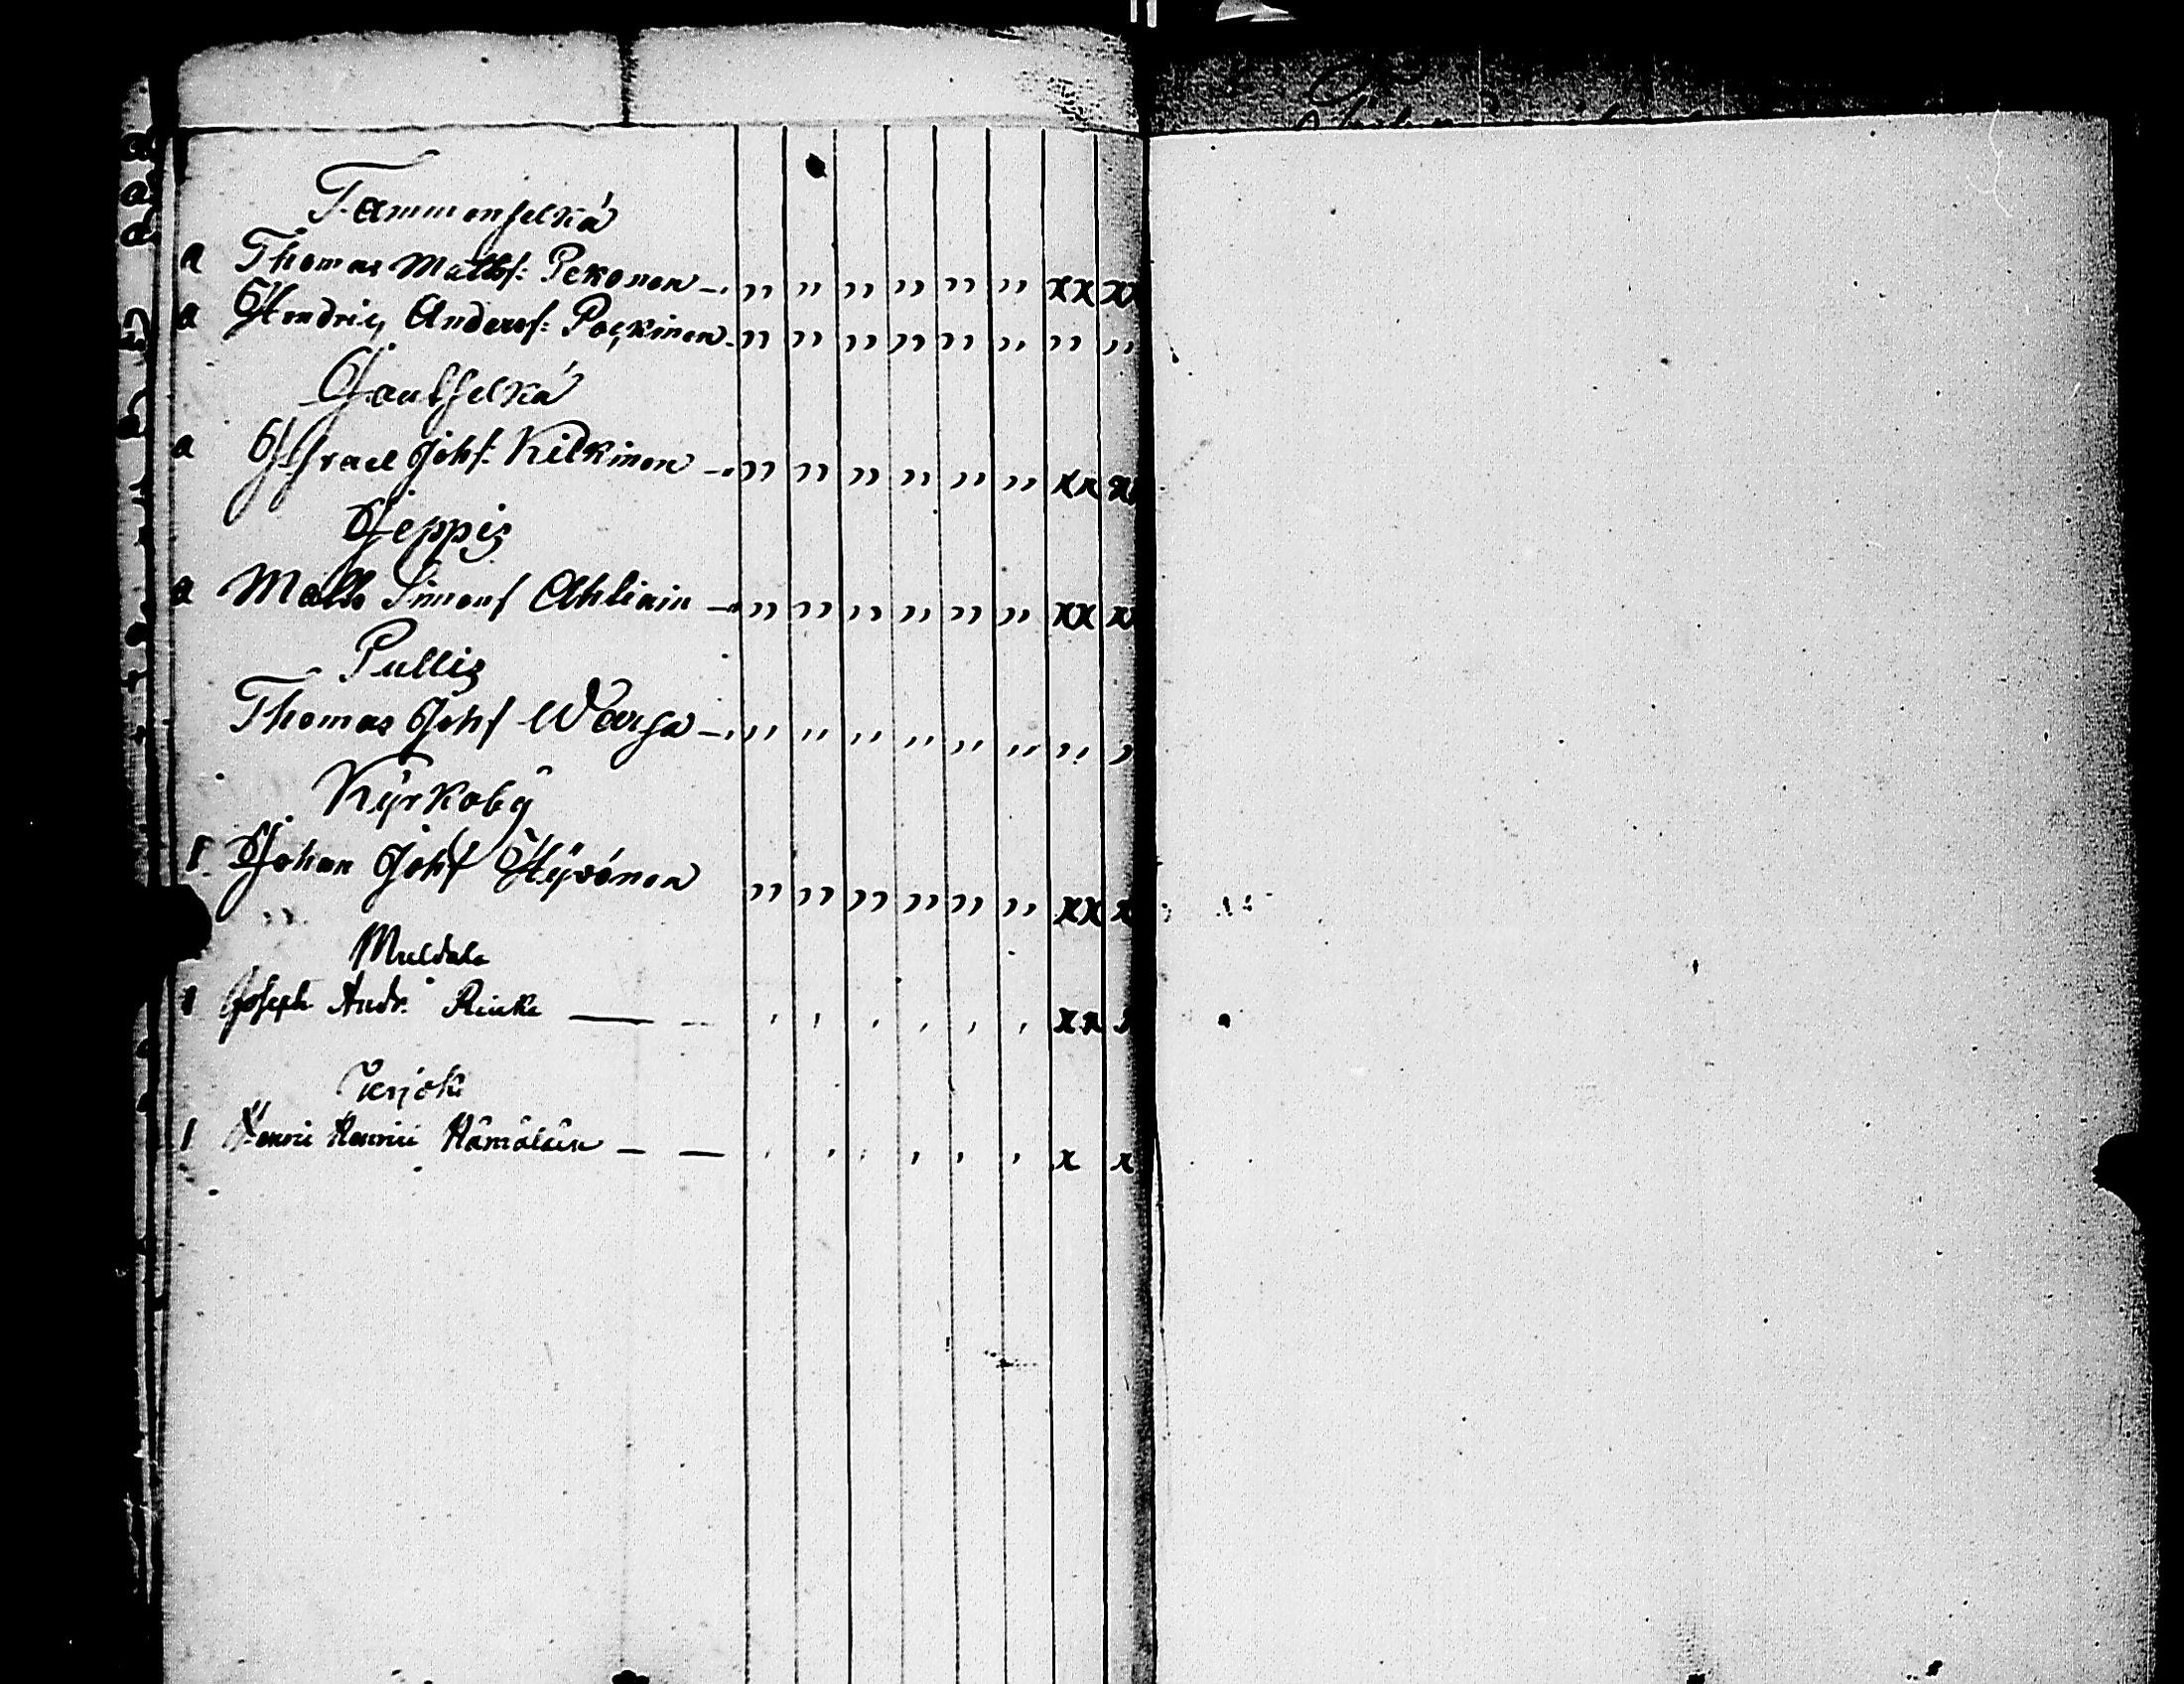 Tammenselkä
a Thomas Matts: Pekonen —. ,, ,, ,, ,, ,, ,, xx xx
a Hendric Anders: Poickinen - ,, ,, ,, ,, ,, ,, ,, ,,
Jautselkä
a Israel Johs: Kilkinen —. ,, ,, ,, ,, ,, ,, xx x
Jeppis
a Matts Simons Ahtiain — ,, ,, ,, ,, ,, ,, xx x
Pullis
Thomas Johs Warsa —. ,, ,, ,, ,, ,, ,, ,, ,
Kÿrkobÿ
1. Johan Johs Hÿvönen ,, ,, ,, ,, ,, ,, xx x
Muldala
1 Joseph Andr. — — , , , , , , xx x
Terjoki
1 Henric Henrici Hämäläin — — , , , , , , x x